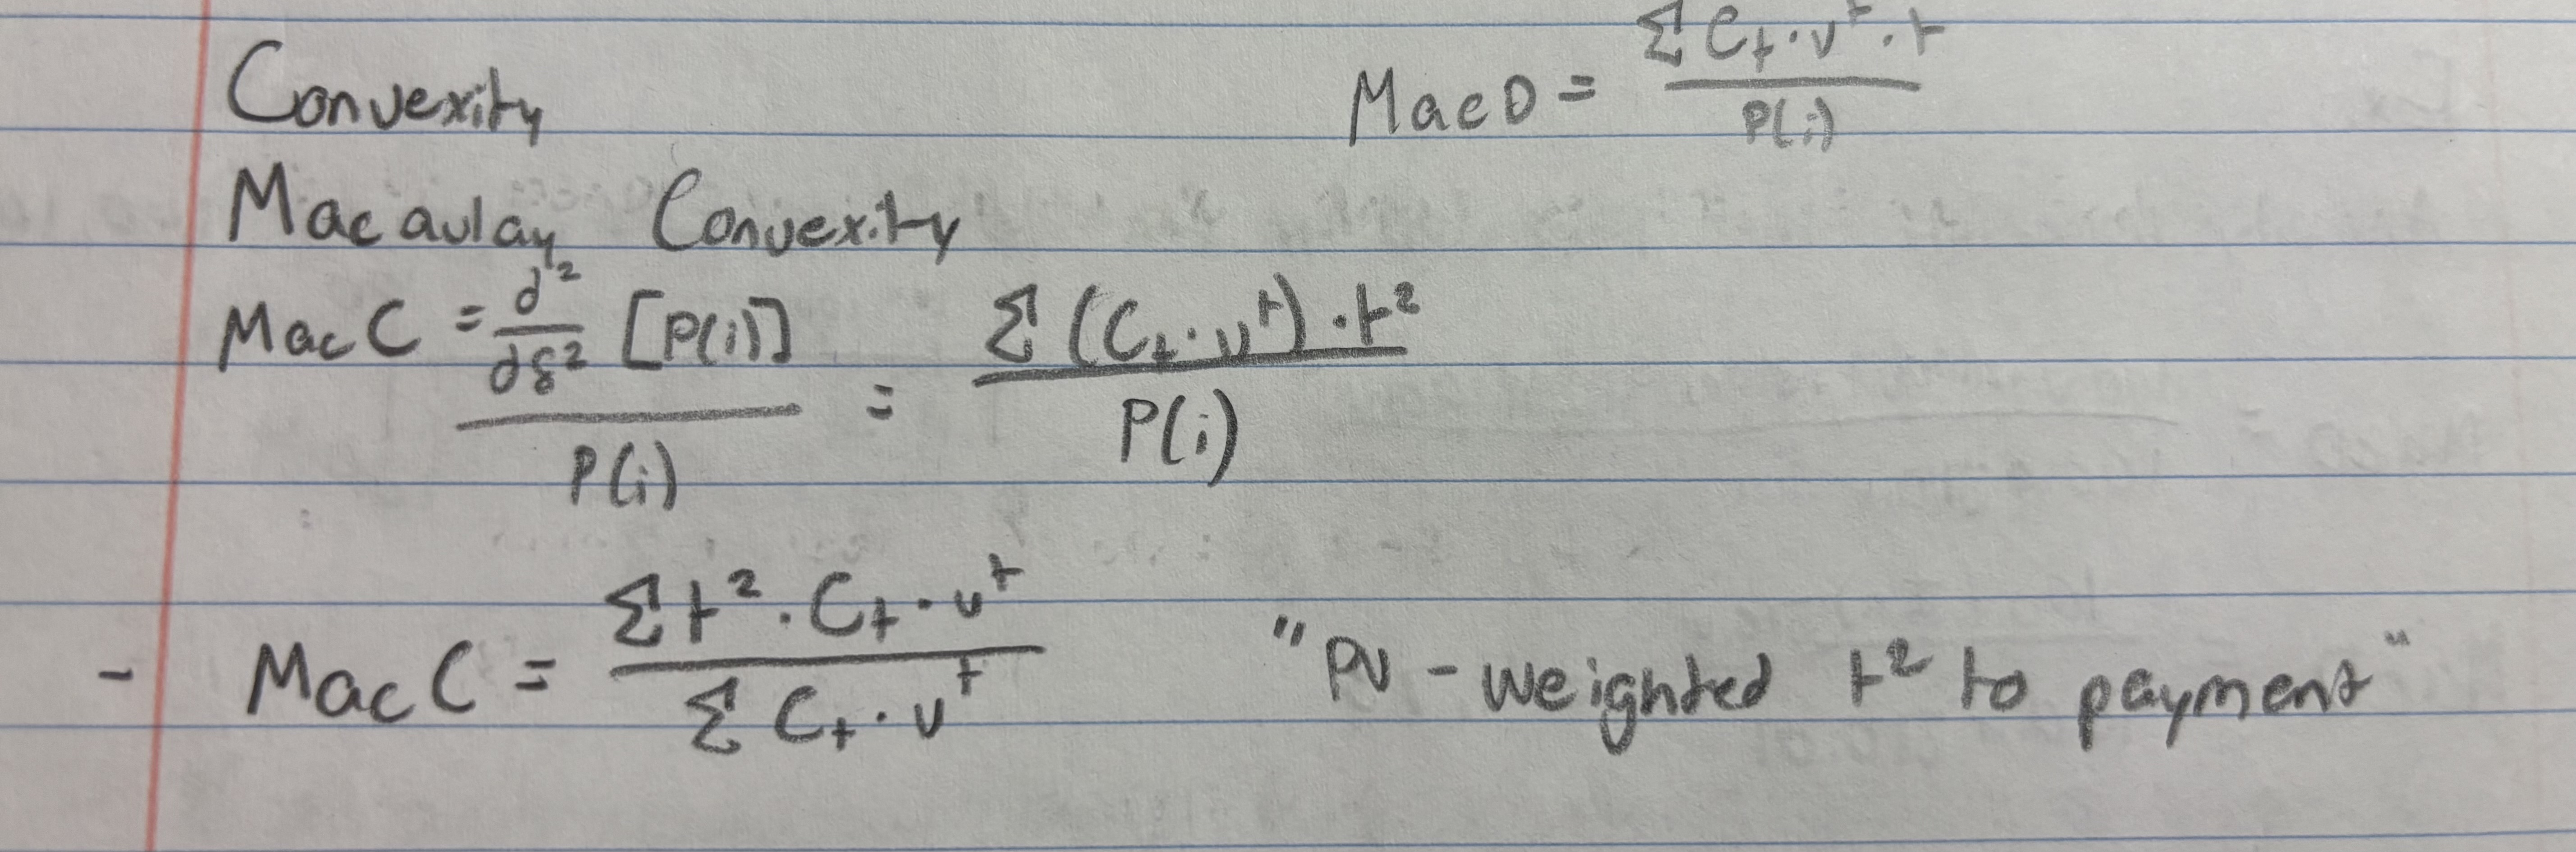 Convexity
MacD = Σ C_t · v^t · t / P(i)
Macaulay Convexity
MacC = d²/dδ² [P(i)] / P(i) = Σ (C_t · v^t) · t² / P(i)
- MacC = Σ t² · C_t · v^t / Σ C_t · v^t "PV - weighted t² to payment"